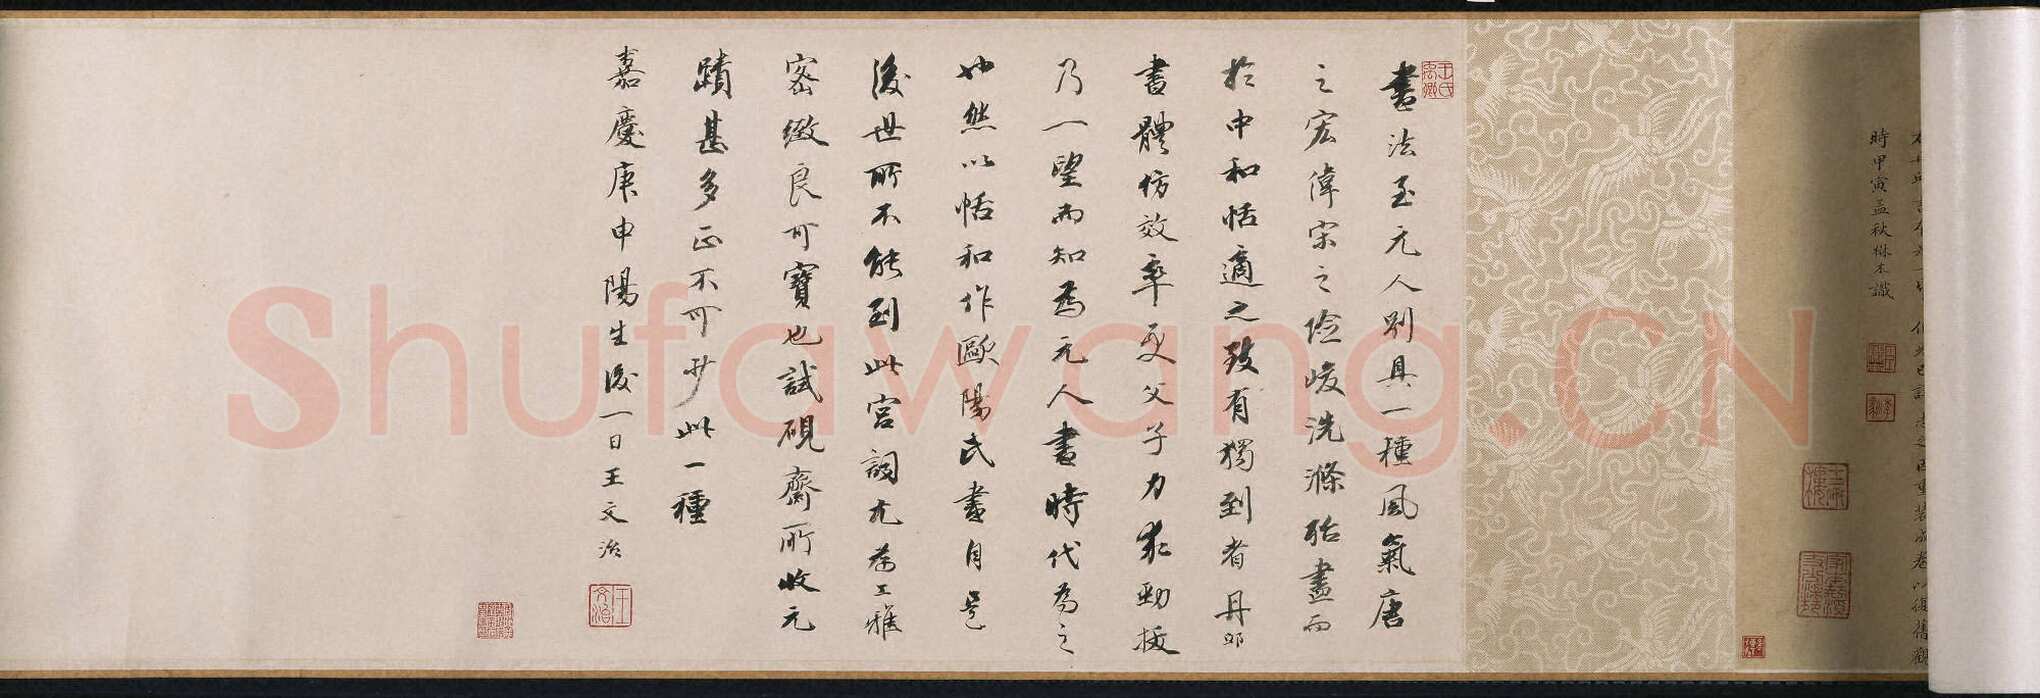 時甲寅孟秋楙木識
書法至元人別具一種風氣唐
之宏偉宋之險峻洗滌殆盡而
於中和恬適之致有獨到者丹邱
書體仿效率更父子力求勁拔
乃一望而知為元人書時代為之
也然以恬和作歐陽氏書自是
後世所不能到此宮詞尤為工雅
密緻良可寶也試硯齋所收元
蹟甚多正不可少此一種
嘉慶庚申陽生後一日王文治
王氏禹卿
王文治
Shufawang.CN